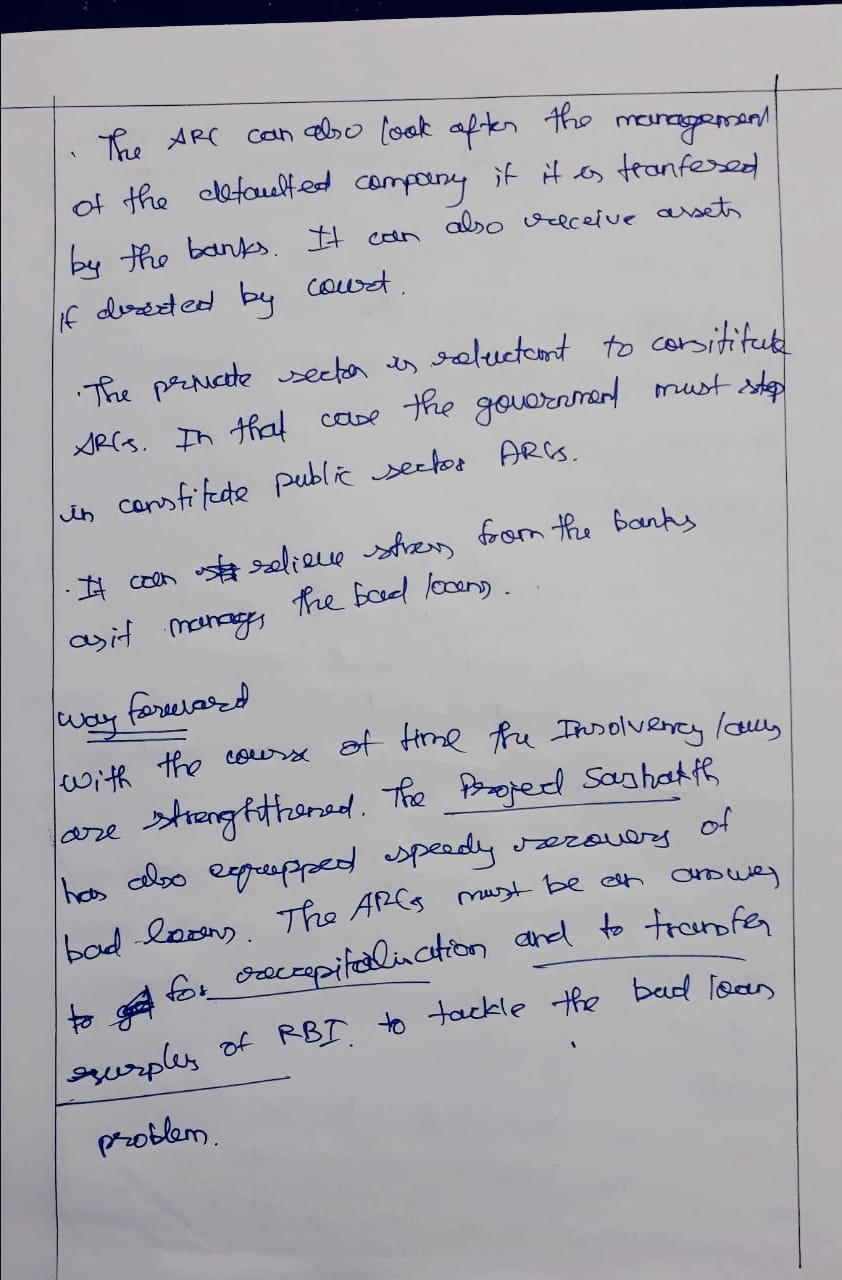 . The ARC can also look after the management
of the defaulted company if it is tranfered
by the banks. It can also receive assets
if directed by court.
. The private sector is reluctant to consititute
ARCs. In that case the government must step
in constitute public sector ARCs.
. It can relieve stress from the banks
as it manages the bad loans.
Way forward
With the course of time the Insolvency laws
are strenghthened. The Project Sashakth
has also equipped speedy recovery of
bad loans. The ARCs must be an answer
for reccapitalisation and to transfer
surples of RBI. to tackle the bad loans
problem.